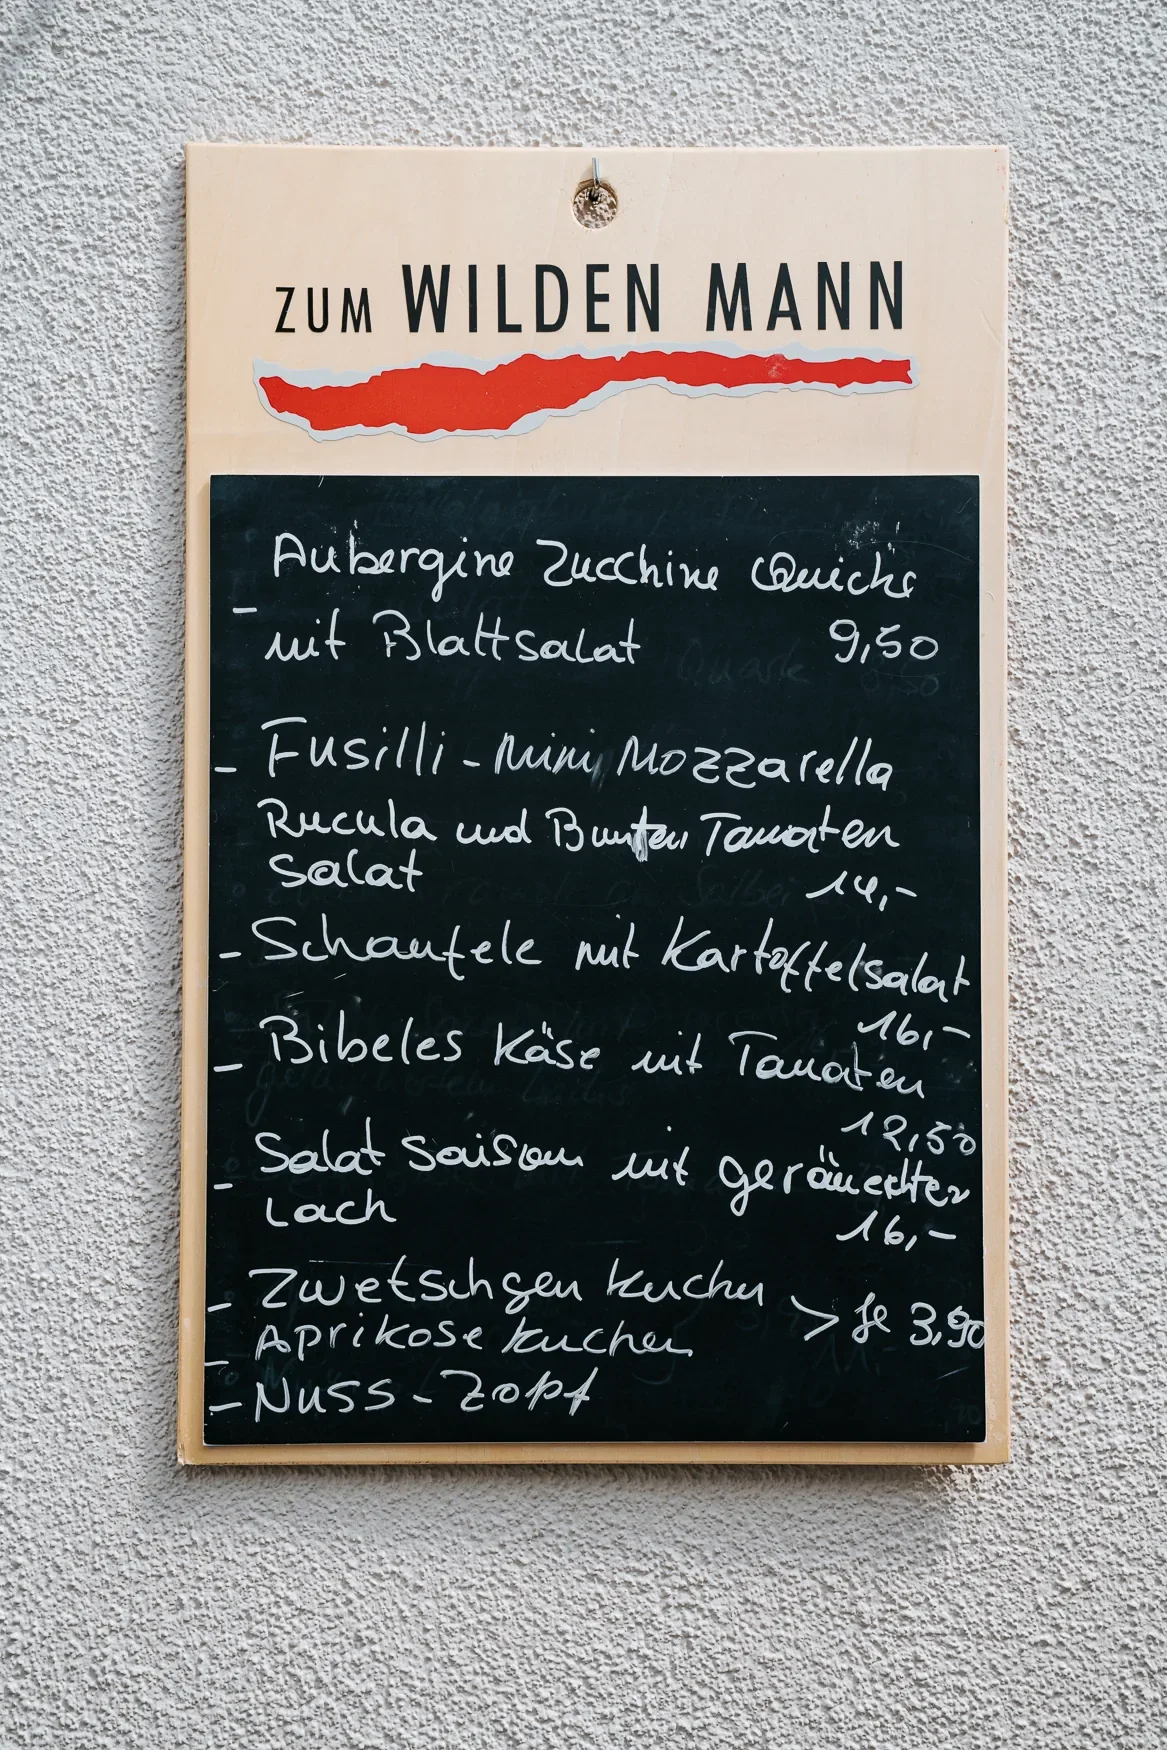 ZUM WILDEN MANN
Aubergine Zucchine Quiche
- mit Blattsalat 9,50
- Fusilli - Mini Mozzarella
Rucula und Bunten Tomaten
Salat 14,-
- Schaufele mit Kartoffelsalat
16,-
- Bibeles Käse mit Tomaten
12,50
- Salat Saison mit geräuchter
Lach 16,-
- Zwetschgen kuchen
- Aprikose kuchen > je 3,90
- Nuss - Zopf